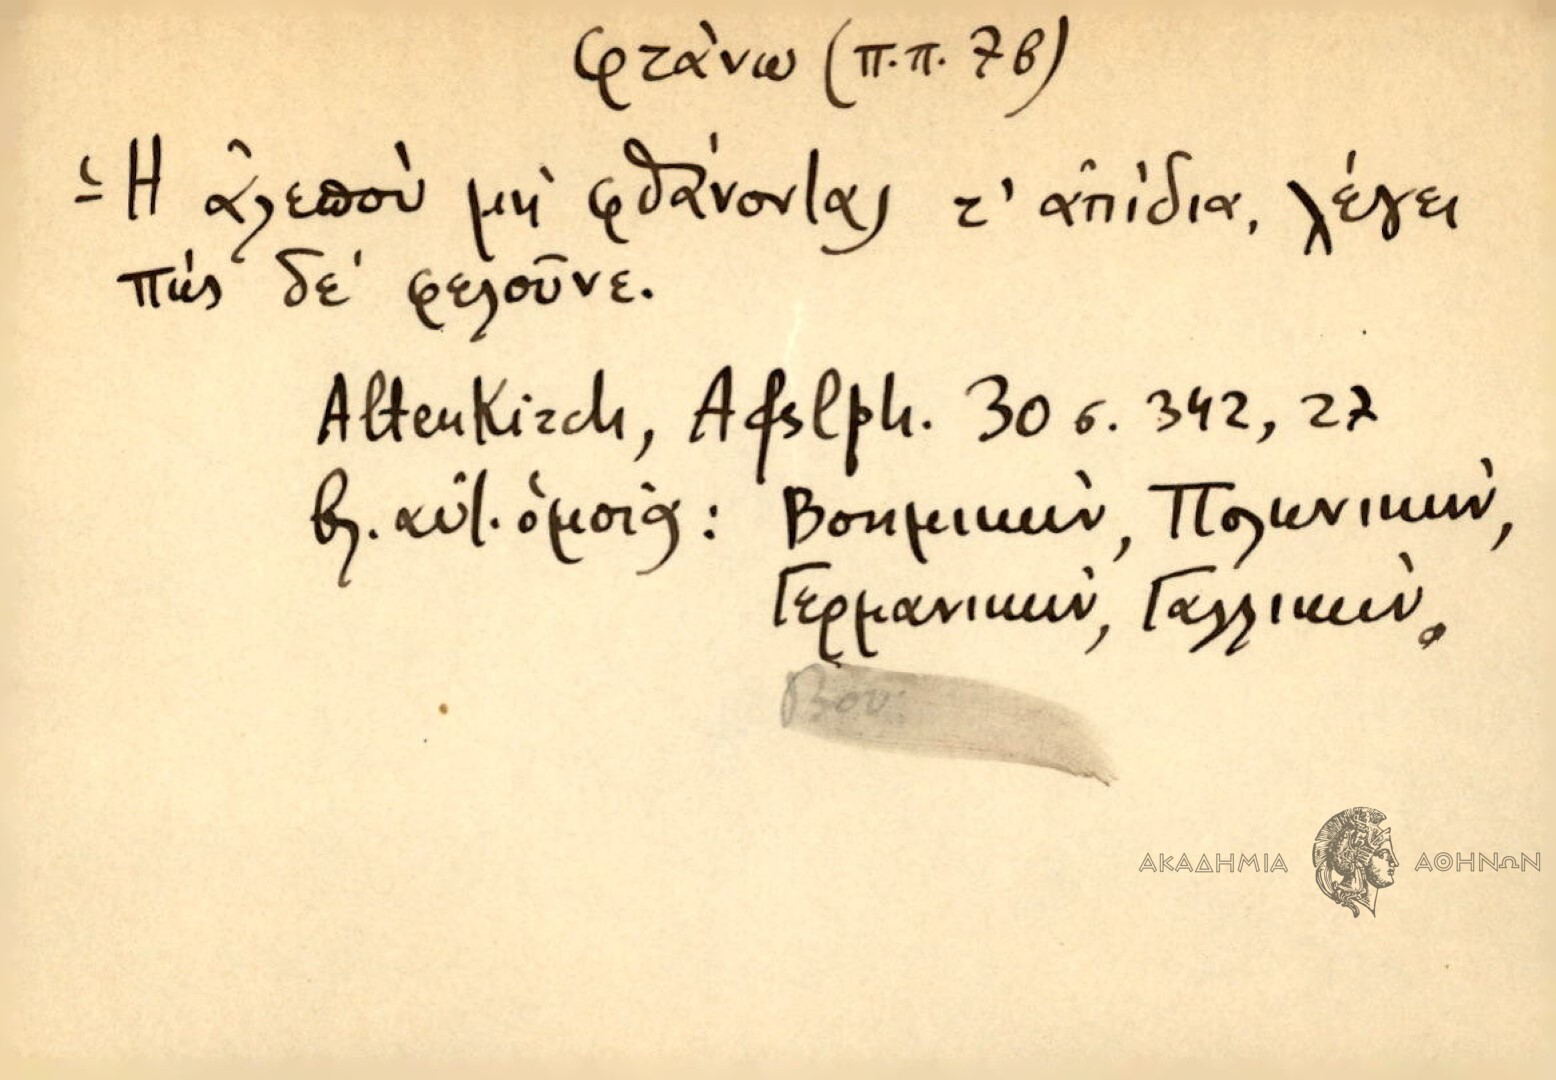 φτάνω (π.π. 7β)
Ἡ ἀλεποὺ μὴ φθάνοντας τ' ἀπίδια, λέγει
πὼς δὲ φελοῦνε.
Altenkirch, Afslph. 30 σ. 342, 27
βλ. αὐτ. ὁμοίαν: Βοημικὴν, Πολωνικὴν,
Γερμανικὴν, Γαλλικὴν.
Βου
ΑΚΑΔΗΜΙΑ ΑΘΗΝΩΝ